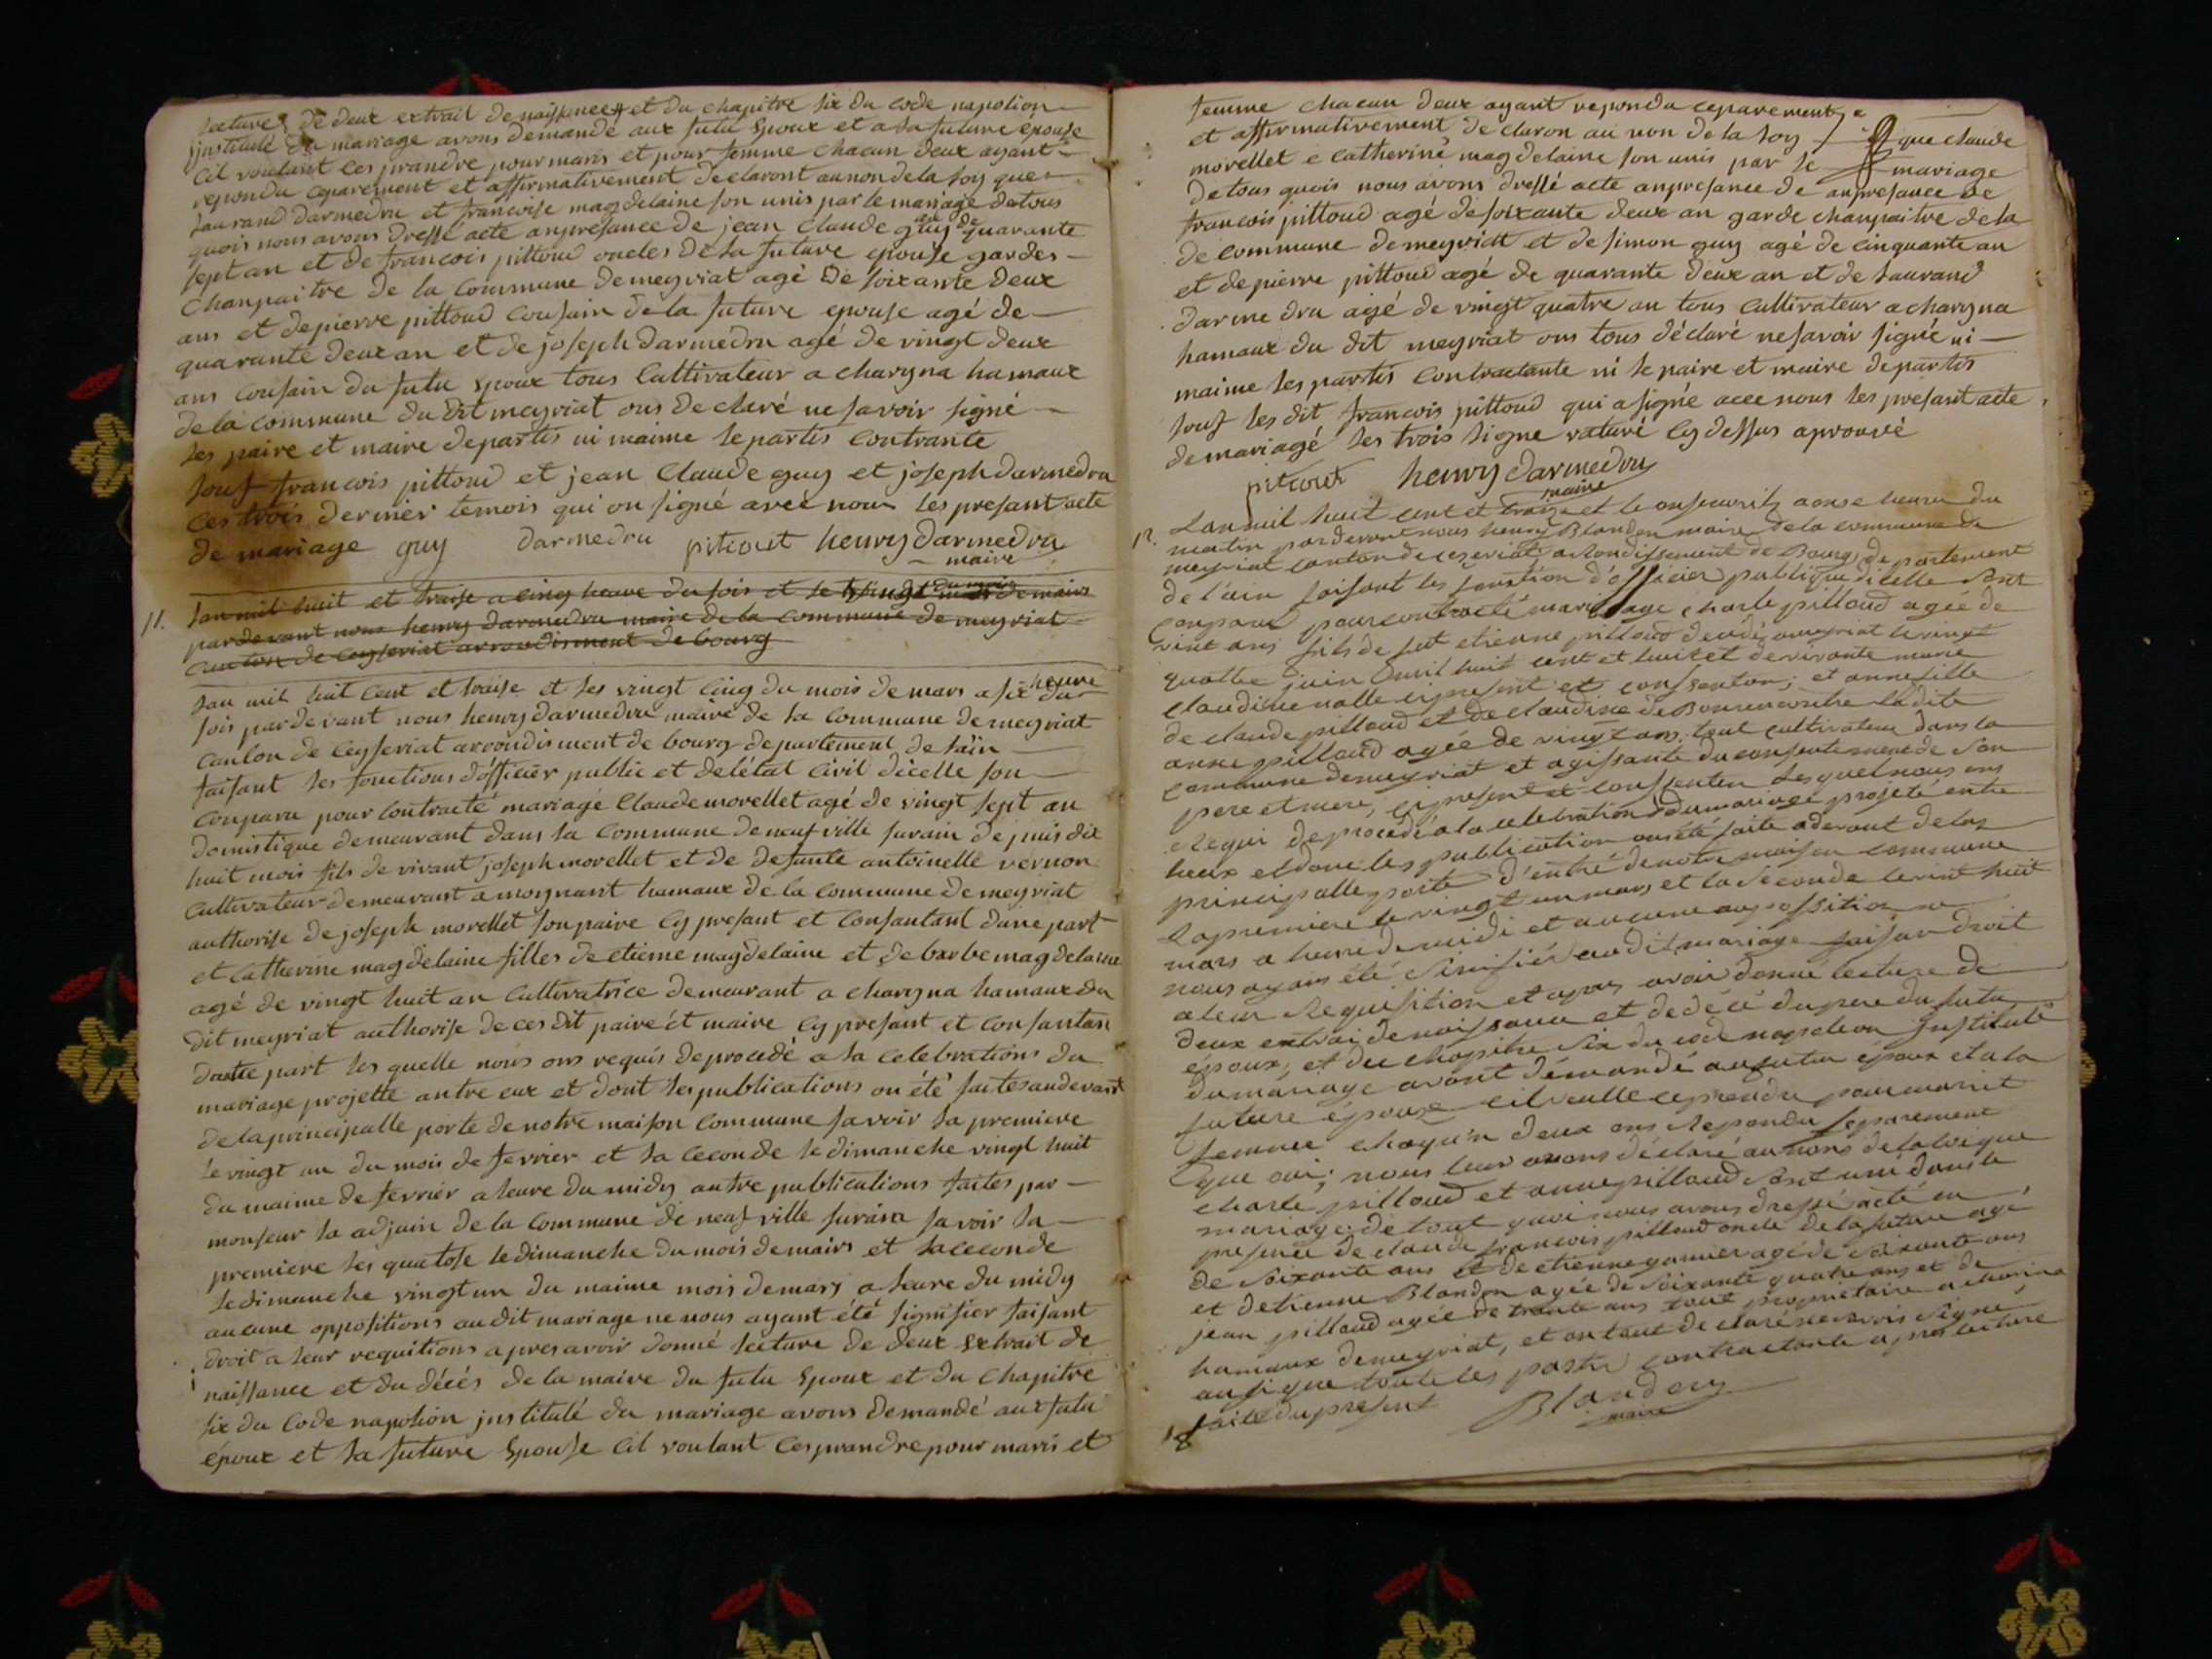 lectures de deux extrait de naissance et du chapitre six du code napolion
justitulé du mariage avons demandé aux futu epoux et a la future épouse
cil voulant ces prandre pour maris et pour femme chacun deux ayant
repondu ceparement et affirmativement declaront au non de la loy que
laurand darmedru et francoise magdelaine son unis par le mariage de tous
quois nous avons dressé acte anpresance de jean claude guy de quarante
sept an et de francois pittoud oncles de la future epouse gardes
chanpaitre de la commune de meyriat agé de soixante deux
ans et de pierre pittoud cousain de la future epouse agé de
quarante deux an et de joseph darmedru agé de vingt deux
ans cousain du futu epoux tous cultivateur a charyna hamaux
de la commune du dit meyriat ons declaré ne savoir signé
les paire et maire de partis ni maime le partis contrante
souf francois pittoud et jean claude guy et joseph darmedru
ces trois dernier temois qui on signé avec nous les presant acte
de mariage guy darmedru pitioud henry darmedru
maire
11. lan mil huit et traise a cinq heure du soir et le vingt du mois de mairs
par devant nous henry darmedru maire de la commune de meyriat
canton de ceyseriat arrondisment de bourg
lan mil huit cent et traise et les vingt cinq du mois de mars a six heure du
soir par devant nous henry darmedru maire de la commune de meyriat
canton de ceyseriat arrondisment de bourg departement de lain
faisant les fonctions d'officier public et de létat civil dicelle son
conparu pour contracté mariage claude morellet agé de vingt sept an
domistique demeurant dans la commune de neufville surain depuis dix
huit mois fils de vivant joseph morellet et de defunte antoinette vernon
cultivateur demeurant a moynant hamaux de la commune de meyriat
authorise de joseph morellet son paire cy presant et consantant dune part
et catherine magdelaine filles de etiene magdelaine et de barbe magdelaine
agé de vingt huit an cultivatrice demeurant a charyna hamaux du
dit meyriat authorise de ces dit paire et maire cy presant et consantan
dautre part les quelle nous ons requis de procedé a la celebrations du
mariage projetté antre eux et dont les publications on été faites au devant
de la principalle porte de notre maison commune savoir la premiere
le vingt un du mois de fevrier et la ceconde le dimanche vingt huit
du maime de fevrier a leure du midy autre publications faites par
monseur la adjoin de la commune de neufville surain savoir la
premiere les quatose le dimanche du mois de mairs et la ceconde
le dimanche vingt un du maime mois de mars a leure du midy
aucune oppositions au dit mariage ne nous ayant été signifier faisant
droit a leur requitions apres avoir donné lecture de deux extrait de
naissance et du décés de la maire du futu epoux et du chapitre
six du code napolion justitulé du mariage avons demandé aux futu
époux et la future epouse cil voulant ces prandre pour maris et
femme chacun deux ayant repondu ceparement
et affirmativement de claron au non de la loy que claude
morellet e catherine magdelaine son unis par le mariage
de tous quois nous avons dressé acte anpresance de anpresance de
francois pittoud agé de soixante deux an garde chanpaitre de la
de commune de meyriat et de simon guy agé de cinquante an
et de pierre pittoud agé de quarante deux an et de laurand
darmedru agé de vingt quatre an tous cultivateur a charyna
hamaux du dit meyriat ons tous déclaré ne savoir signé ni
maime les partis contractante ni le paire et maire de partis
souf les dit francois pittoud qui a signé avec nous les presant acte
de mariagé les trois ligne raturé cy dessus aprouvé
pitioud henry darmedru
maire
12. Lan mil huit cent et traize et le onse avril a onse heure du
matin pardevant nous henry Blandon maire de la commune de
meyriat canton de ceseriat arondissement de Bourg departement
de l'ain faisant les fonction d'officier publique dicelle sont
conparu pour contracté mariage charle pilloud agée de
vint ans fils de fut etienne pilloud décédé a meyriat le vingt
quattre juin mil huit cent et huit et de vivante marie
claudine nalle cipresent et consenton; et anne fille
de claude pilloud et de claudine de Bonrencontre ladite
anne pilloud agée de vingt ans tout cultivateur dans la
commune de meyriat et agissante du consentement de son
pere et mere, cipresent et consenten lesquel nous ons
requi de procédé a la celebration du mariage projeté entre
heux et dont les publication ons été faite adevant de la
principalle porte d'entré de notre maison commune
la premiere le vingt un mars et la seconde le vint huit
mars a heure de midi et aucune aupossition ne
nous ayans été sinifiér audit mariage faisan droit
a leur requisition et apres avoir donné lecture de
deux extrai de naissance et de décé du pere du futu
époux, et du chapitre six du code napoleon Justitulé
du mariage avont démandé aufutur époux et a la
future épouse cil veulle ce prendre pour marit
femme chaqu'n deux ons repondu separement
que oui; nous leur avons déclaré au nons de la loi que
charle pilloud et anne pilloud sont uni dans le
mariage; de tout quoi nous avons dressé acté en
presence de claude françois pilloud oncle de la future agé
de soixante ans et de etienne gonnier agé de soixante ans
et detienne Blandon agée de soixante quatre ans et de
jean pilloud agée de trante ans tout proprietaire a charina
hamaux de meyriat, et on tout de claré ne savoir signe
ansi que toute les partie contractante apres lecture
faite du present Blandon
maire